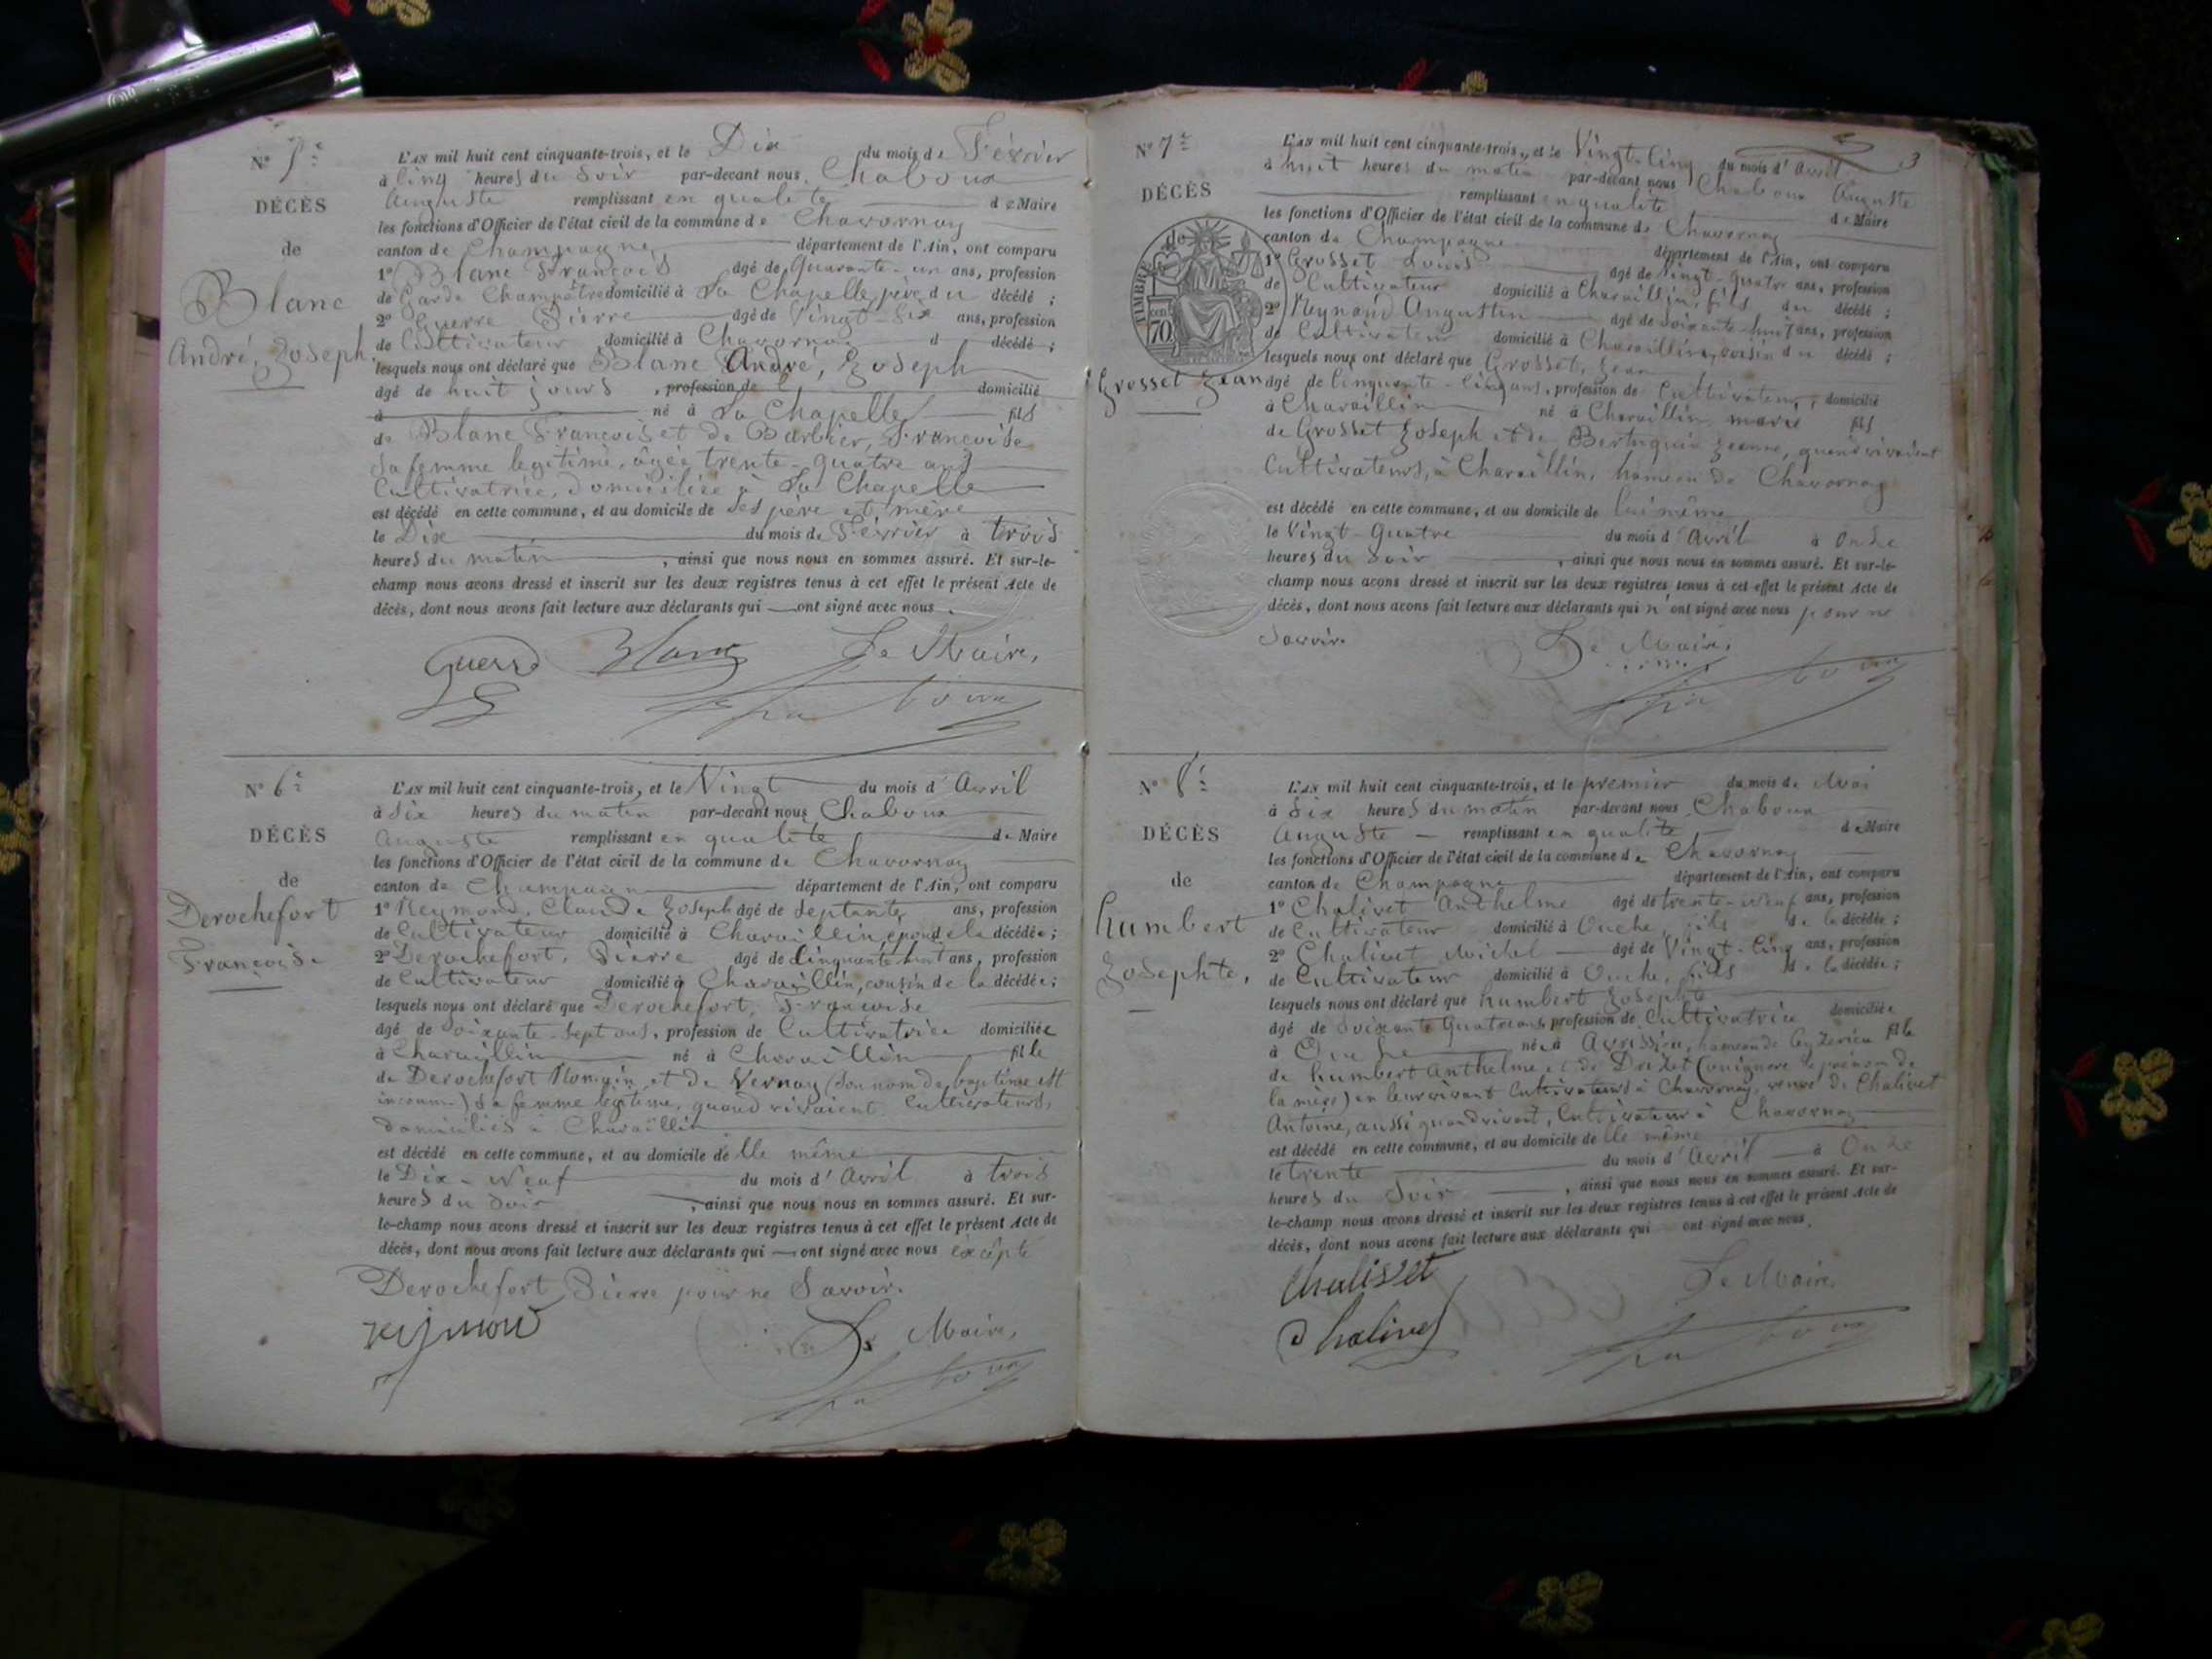 N° 5e
DÉCÈS
de
Blanc
André, Joseph
L'AN mil huit cent cinquante-trois, et le Dix du mois de Février
à cinq heures du soir par-devant nous Chaboux
Auguste remplissant en qualité de Maire
les fonctions d'Officier de l'état civil de la commune de Chavornay
canton de Champagne département de l'Ain, ont comparu
1° Blanc François âgé de Quarante-un ans, profession
de Garde Champêtre domicilié à La Chapelle, père du décédé ;
2° Guerre Pierre âgé de Vingt-six ans, profession
de Cultivateur domicilié à Chavornay d décédé ;
lesquels nous ont déclaré que Blanc André, Joseph
âgé de huit jours, profession de domicilié
à né à La Chapelle fils
de Blanc François et de Barbier, Françoise
sa femme legitime, âgée trente-quatre ans
Cultivatrice, domiciliée à La Chapelle
est décédé en cette commune, et au domicile de ses père et mère
le Dix du mois de Février à trois
heures du matin, ainsi que nous nous en sommes assuré. Et sur-le-
champ nous avons dressé et inscrit sur les deux registres tenus à cet effet le présent Acte de
décès, dont nous avons fait lecture aux déclarants qui ont signé avec nous.
Guerre Blanc Le Maire,
Chaboux
N° 6e
DÉCÈS
de
Derochefort
Françoise
L'AN mil huit cent cinquante-trois, et le Vingt du mois d'Avril
à Six heures du matin par-devant nous Chaboux
Auguste remplissant en qualité de Maire
les fonctions d'Officier de l'état civil de la commune de Chavornay
canton de Champagne département de l'Ain, ont comparu
1° Reymond, Claude Joseph âgé de Septante ans, profession
de Cultivateur domicilié à Charaillin, époux de la décédée ;
2° Derochefort, Pierre âgé de Cinquante-huit ans, profession
de Cultivateur domicilié à Charaillin, cousin de la décédée ;
lesquels nous ont déclaré que Derochefort, Françoise
âgé de Soixante-Sept ans, profession de Cultivatrice domiciliée
à Charaillin né à Charaillin fille
de Derochefort et de Vernay (son nom de baptême est
inconnu) sa femme légitime, quand vivaient Cultivateurs,
domiciliés à Charaillin
est décédé en cette commune, et au domicile de Elle même
le Dix-Neuf du mois d'Avril à trois
heures du Soir, ainsi que nous nous en sommes assuré. Et sur-
le-champ nous avons dressé et inscrit sur les deux registres tenus à cet effet le présent Acte de
décès, dont nous avons fait lecture aux déclarants qui ont signé avec nous excepté
Derochefort Pierre pour ne Savoir.
Reymon Le Maire,
Chaboux
3
N° 7e
DÉCÈS
de
TIMBRE
70
Grosset Jean
L'AN mil huit cent cinquante-trois, et le Vingt-Cinq du mois d'Avril
à huit heures du matin par-devant nous Chaboux Auguste
remplissant en qualité de Maire
les fonctions d'Officier de l'état civil de la commune de Chavornay
canton de Champagne département de l'Ain, ont comparu
1° Grosset Louis âgé de Vingt-quatre ans, profession
de Cultivateur domicilié à Charaillin, fils du décédé ;
2° Reynaud Augustin âgé de Soixante-huit ans, profession
de Cultivateur domicilié à Charaillin, voisin du décédé ;
lesquels nous ont déclaré que Grosset, Jean
âgé de Cinquante-Cinq ans, profession de Cultivateur, domicilié
à Charaillin né à Charaillin marié fils
de Grosset Joseph et de Jeanne, quand vivaient
Cultivateurs, à Charaillin, hameau de Chavornay
est décédé en cette commune, et au domicile de lui même
le Vingt-Quatre du mois d'Avril à Onze
heures du Soir, ainsi que nous nous en sommes assuré. Et sur-le-
champ nous avons dressé et inscrit sur les deux registres tenus à cet effet le présent Acte de
décès, dont nous avons fait lecture aux déclarants qui n'ont signé avec nous pour ne
Savoir.
Le Maire,
Chaboux
N° 8e
DÉCÈS
de
humbert
Josephte,
L'AN mil huit cent cinquante-trois, et le premier du mois de Mai
à Six heures du matin par-devant nous Chaboux
Auguste remplissant en qualité de Maire
les fonctions d'Officier de l'état civil de la commune de Chavornay
canton de Champagne département de l'Ain, ont comparu
1° Chalivet Anthelme âgé de trente-neuf ans, profession
de Cultivateur domicilié à Ouche, fils de la décédée ;
2° Chalivet Michel âgé de Vingt-Cinq ans, profession
de Cultivateur domicilié à Ouche, fils de la décédée ;
lesquels nous ont déclaré que humbert Josephte
âgé de Soixante Quatre ans profession de Cultivatrice domiciliée
à Ouche née à Avrissieu, hameau de Ceyzerieu fille
de humbert Anthelme et de (on ignore le prénom de
la mère) en leur vivant Cultivateurs à Chavornay, veuve de Chalivet
Antoine, aussi quand vivait, Cultivateur à Chavornay
est décédé en cette commune, et au domicile de Elle même
le trente du mois d'Avril à Onze
heures du Soir, ainsi que nous nous en sommes assuré. Et sur-
le-champ nous avons dressé et inscrit sur les deux registres tenus à cet effet le présent Acte de
décès, dont nous avons fait lecture aux déclarants qui ont signé avec nous.
Chalivet Le Maire,
Chalivet Chaboux